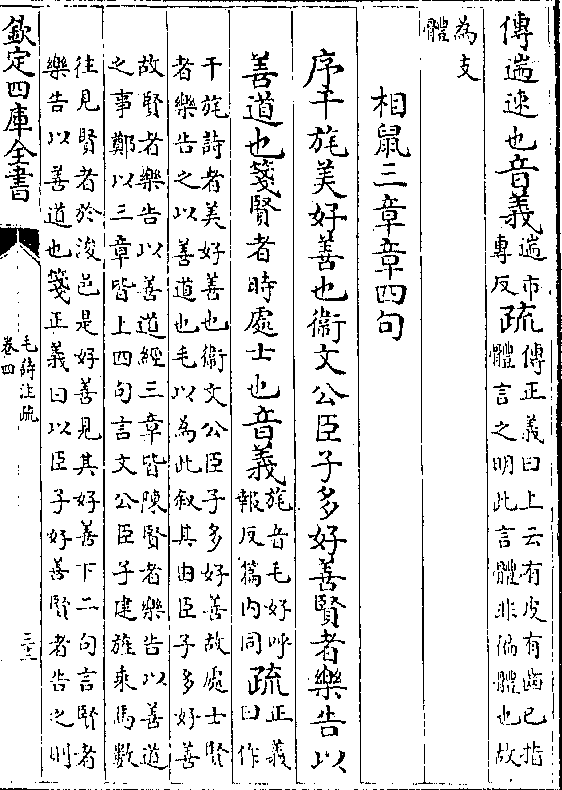 傳遄速也音義遄市專反疏傳正義曰上云有皮有齒已指體言之明此言體非偏體也故
為支體
相鼠三章章四句
序干旄美好善也衞文公臣子多好善賢者樂告以
善道也箋賢者時處士也音義旄音毛好呼報反篇内同疏正義曰作
干旄詩者美好善也衞文公臣子多好善故處士賢
者樂告之以善道也毛以為此叙其由臣子多好善
故賢者樂告以善道經三章皆陳賢者樂告以善道
之事鄭以三章皆上四句言文公臣子建旌乘馬數
往見賢者於浚邑是好善見其好善下二句言賢者
樂告以善道也箋正義曰以臣子好善賢者告之則
欽定四庫全書
毛詩注疏
卷四
三十二